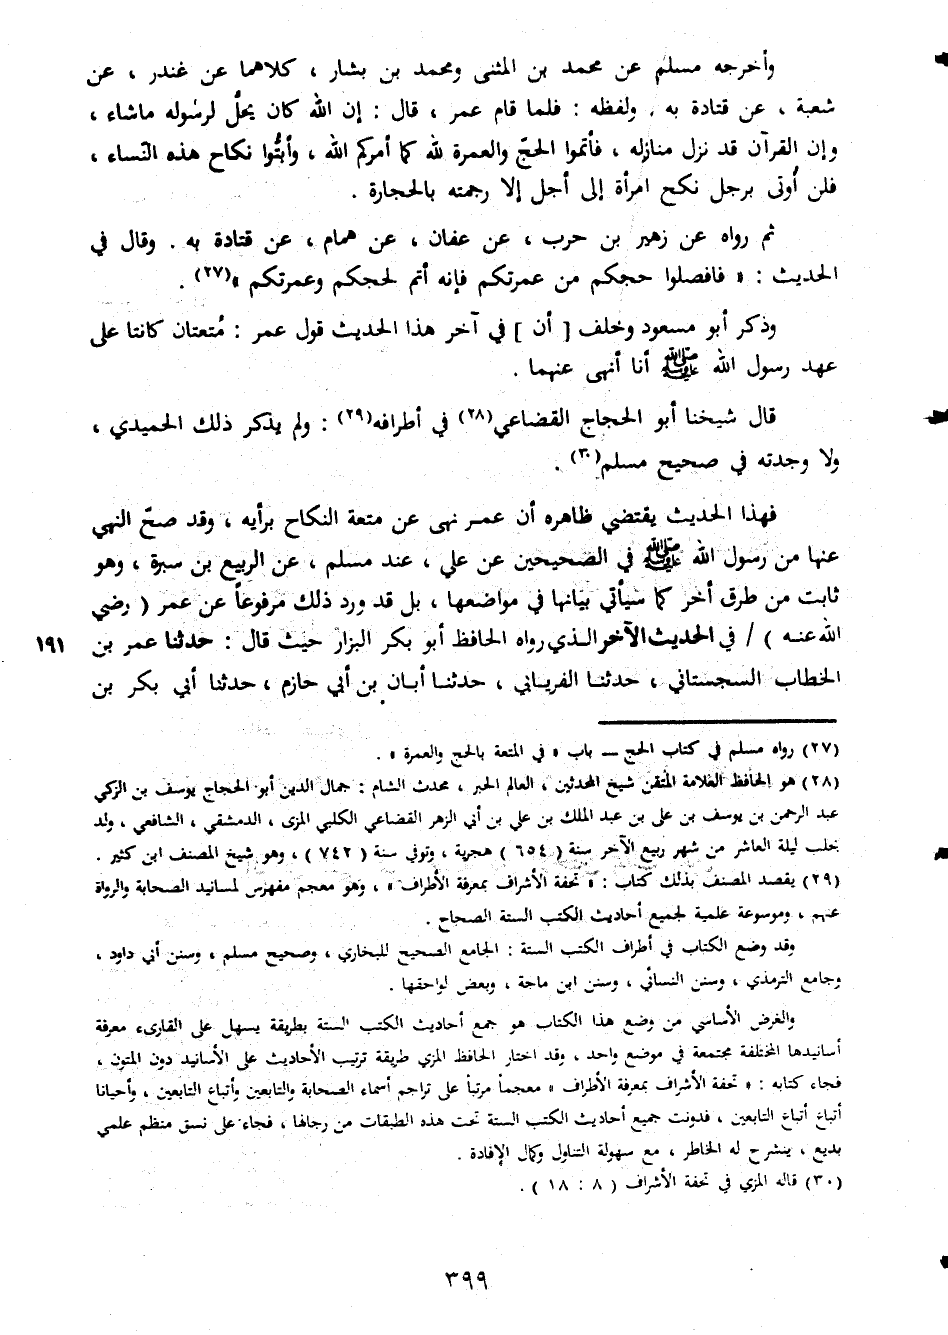 وأخرجه مسلم عن محمد بن المثنى ومحمد بن بشار ، كلاهما عن غندر ، عن
شعبة ، عن قتادة به . ولفظه : فلما قام عمر ، قال : إن الله كان يحلّ لرسوله ماشاء ،
وإن القرآن قد نزل منازله ، فأتموا الحجّ والعمرة لله كما أمركم الله ، وأبتُّوا نكاح هذه النّساء ،
فلن أُوتى برجل نكح امرأة إلى أجل إلا رجمته بالحجارة .
ثم رواه عن زهير بن حرب ، عن عفان ، عن همام ، عن قتادة به . وقال في
الحديث : « فافصلوا حجكم من عمرتكم فإنه أتم لحجكم وعمرتكم »(٢٧) .
وذكر أبو مسعود وخلف [ أن ] في آخر هذا الحديث قول عمر : مُتعتان كانتا على
عهد رسول الله ﷺ أنا أنهى عنهما .
قال شيخنا أبو الحجاج القضاعي(٢٨) في أطرافه(٢٩) : ولم يذكر ذلك الحميدي ،
ولا وجدته في صحيح مسلم(٣٠) .
فهذا الحديث يقتضي ظاهره أن عمر نهى عن متعة النكاح برأيه ، وقد صحّ النهي
عنها من رسول الله ﷺ في الصحيحين عن علي ، عند مسلم ، عن الربيع بن سبرة ، وهو
ثابت من طرق أخر كما سيأتي بيانها في مواضعها ، بل قد ورد ذلك مرفوعاً عن عمر ( رضي
الله عنه ) / في الحديث الآخر الذي رواه الحافظ أبو بكر البزار حيث قال : حدثنا عمر بن
١٩١
الخطاب السجستاني ، حدثنا الفريابي ، حدثنا أبان بن أبي حازم ، حدثنا أبي بكر بن
(٢٧) رواه مسلم في كتاب الحج ــ باب « في المتعة بالحج والعمرة » .
(٢٨) هو الحافظ العلامة المتقن شيخ المحدثين ، العالم الحبر ، محدث الشام : جمال الدين أبو الحجاج يوسف بن الزكي
عبد الرحمن بن يوسف بن علي بن عبد الملك بن علي بن أبي الزهر القضاعي الكلبي المزى ، الدمشقي ، الشافعي ، ولد
بحلب ليلة العاشر من شهر ربيع الآخر سنة ( ٦٥٤ ) هجرية ، وتوفي سنة ( ٧٤٢ ) ، وهو شيخ المصنف ابن كثير .
(٢٩) يقصد المصنف بذلك كتاب : « تحفة الأشراف بمعرفة الأطراف » ، وهو معجم مفهرس لمسانيد الصحابة والرواة
عنهم ، وموسوعة علمية لجميع أحاديث الكتب الستة الصحاح .
وقد وضع الكتاب في أطراف الكتب الستة : الجامع الصحيح للبخاري ، وصحيح مسلم ، وسنن أبي داود ،
وجامع الترمذي ، وسنن النسائي ، وسنن ابن ماجة ، وبعض لواحقها .
والغرض الأساسي من وضع هذا الكتاب هو جمع أحاديث الكتب الستة بطريقة يسهل على القارىء معرفة
أسانيدها المختلفة مجتمعة في موضع واحد ، وقد اختار الحافظ المزي طريقة ترتيب الأحاديث على الأسانيد دون المتون ،
فجاء كتابه : « تحفة الأشراف بمعرفة الأطراف » معجماً مرتباً على تراجم أسماء الصحابة والتابعين وأتباع التابعين ، وأحيانا
أتباع أتباع التابعين ، فدونت جميع أحاديث الكتب الستة تحت هذه الطبقات من رجالها ، فجاء على نسق منظم علمي
بديع ، ينشرح له الخاطر ، مع سهولة التناول وكمال الإفادة .
(٣٠) قاله المزي في تحفة الأشراف ( ٨ : ١٨ ) .
٣٩٩